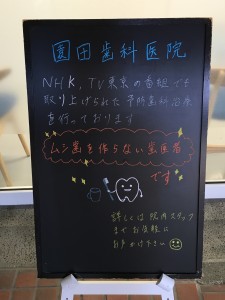 園田歯科医院
NHK、TV東京の番組でも
取り上げられた予防歯科治療
を行っております
ムシ歯を作らない歯医者
です
詳しくは院内スタッフ
までお気軽に
お声かけ下さい